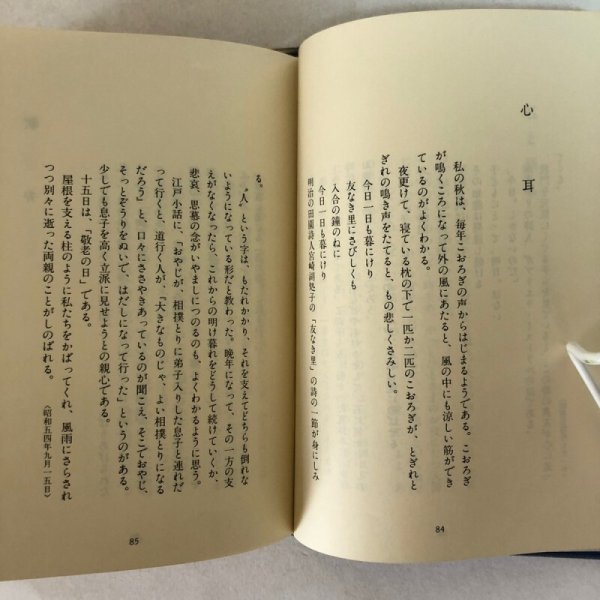 心耳
私の秋は、毎年こおろぎの声からはじまるようである。こおろぎ
が鳴くころになって外の風にあたると、風の中にも涼しい筋ができ
ているのがよくわかる。
夜更けて、寝ている枕の下で一匹か二匹のこおろぎが、とぎれと
ぎれの鳴き声をたてると、もの悲しくさみしい。
今日一日も暮にけり
友なき里にさびしくも
入合の鐘のねに
今日一日も暮にけり
明治の田園詩人宮崎湖処子の「友なき里」の詩の一節が身にしみ
84
る。
“人”という字は、もたれかかり、それを支えてどちらも倒れな
いようになっている形だと教わった。晩年になって、その一方の支
えがなくなったら、これからの明け暮れをどうして続けていくか、
悲哀、思慕の念がいやましにつのるのも、よくわかるように思う。
江戸小話に、「おやじが、相撲とりに弟子入りした息子と連れだ
って行くと、道行く人が、「大きなものじゃ、よい相撲とりになる
だろう」と、口々にささやきあっているのが聞こえ、そこでおやじ、
そっとぞうりをぬいで、はだしになって行った」というのがある。
少しでも息子を高く立派に見せようとの親心である。
十五日は、「敬老の日」である。
屋根を支える柱のように私たちをかばってくれ、風雨にさらされ
つつ別々に逝った両親のことがしのばれる。
〈昭和五四年九月一五日〉
85